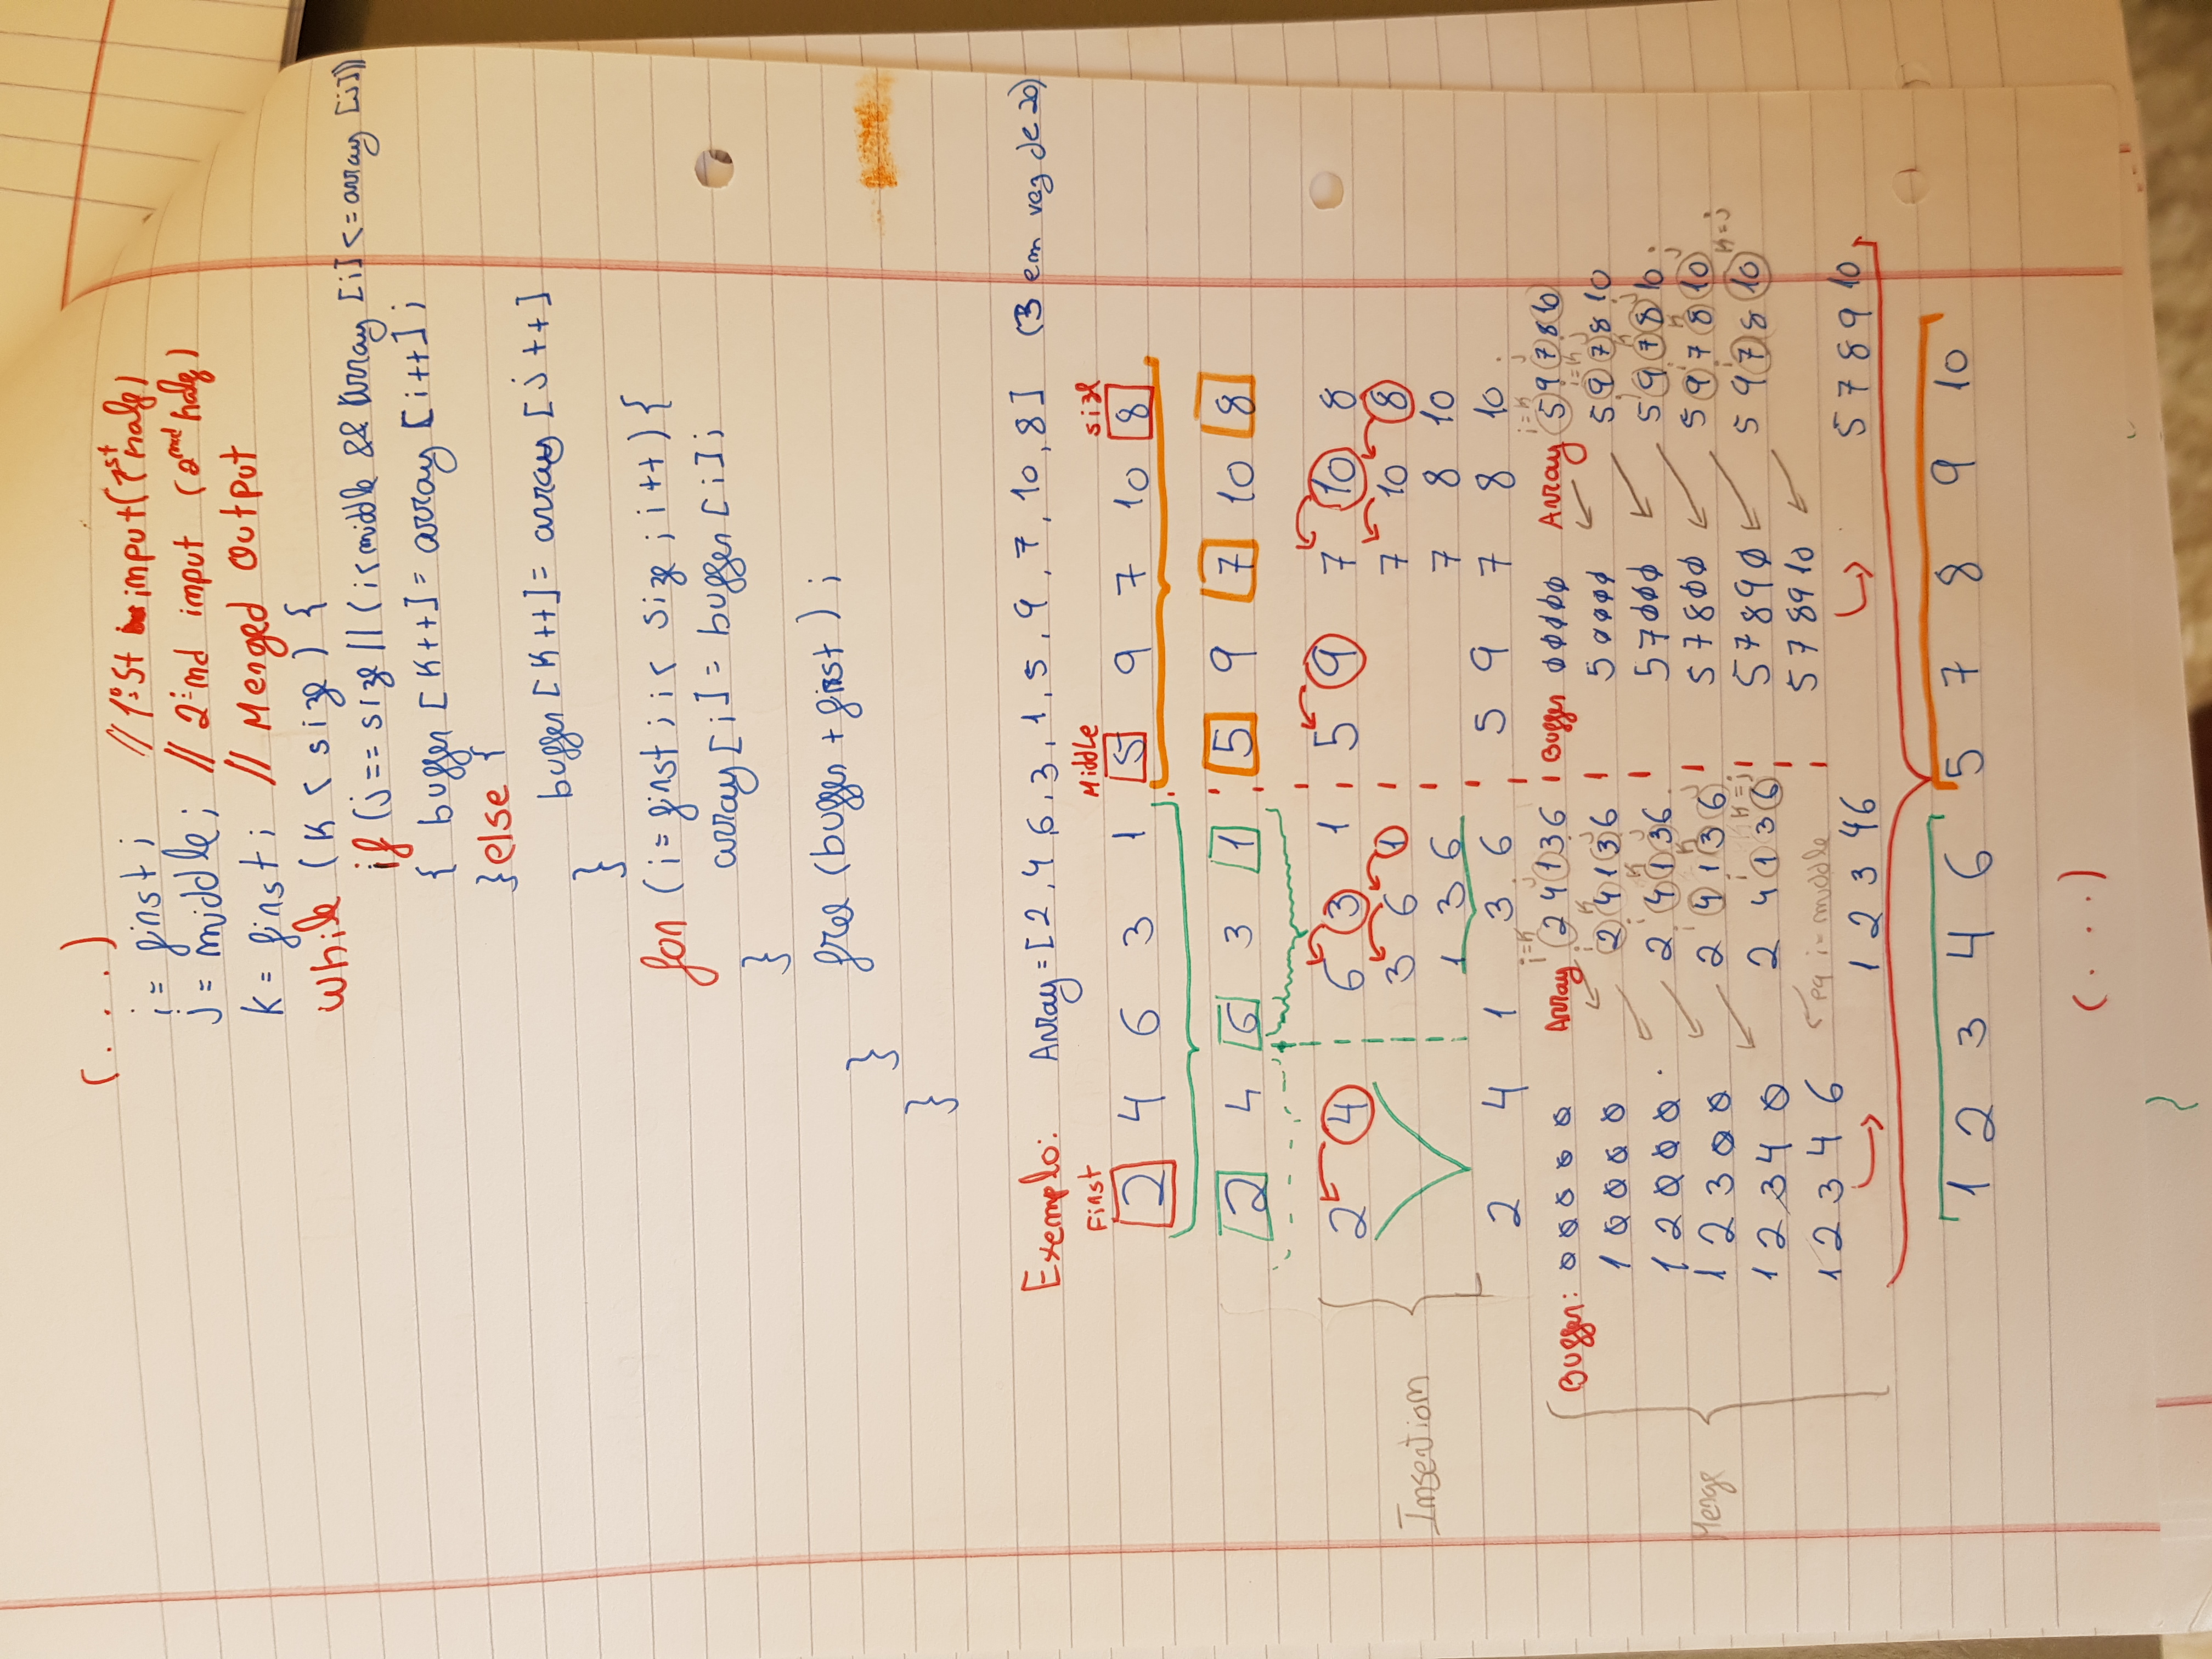 (...)
i = first;   // 1º: St input (1st half)
j = middle;   // 2:nd input (2nd half)
k = first;   // Merged Output
while (k < size) {
if (j == size || (i < middle && array [i] <= array [j]))
{ buffer [k++] = array [i++];
} else {
buffer [k++] = array [j++]
}
for (i = first; i < size; i++) {
array [i] = buffer [i];
}
free (buffer + first);
}
}
Exemplo: Array = [2, 4, 6, 3, 1, 5, 9, 7, 10, 8] (3 em vez de 20)
First Middle size
2 4 6 3 1 5 9 7 10 8
2 4 6 3 1 5 9 7 10 8
2 4 6 3 1 5 9 7 10 8
3 6 1 7 10 8
Insertion
1 3 6 7 8 10
2 4 1 3 6 5 9 7 8 10
i=k j i=k j
Buffer: 0 0 0 0 0 Array 2 4 1 3 6 Buffer 0 0 0 0 0 Array 5 9 7 8 10
i k j i=k j
1 0 0 0 0 2 4 1 3 6 5 0 0 0 0 5 9 7 8 10
i k j i k j
1 2 0 0 0 2 4 1 3 6 5 7 0 0 0 5 9 7 8 10
Merge
i k j i k j
1 2 3 0 0 2 4 1 3 6 5 7 8 0 0 5 9 7 8 10
i k=j i k=j
1 2 3 4 0 2 4 1 3 6 5 7 8 9 0 5 9 7 8 10
1 2 3 4 6 pq i = middle 5 7 8 9 10
1 2 3 4 6 5 7 8 9 10
1 2 3 4 6 5 7 8 9 10
(...)
}